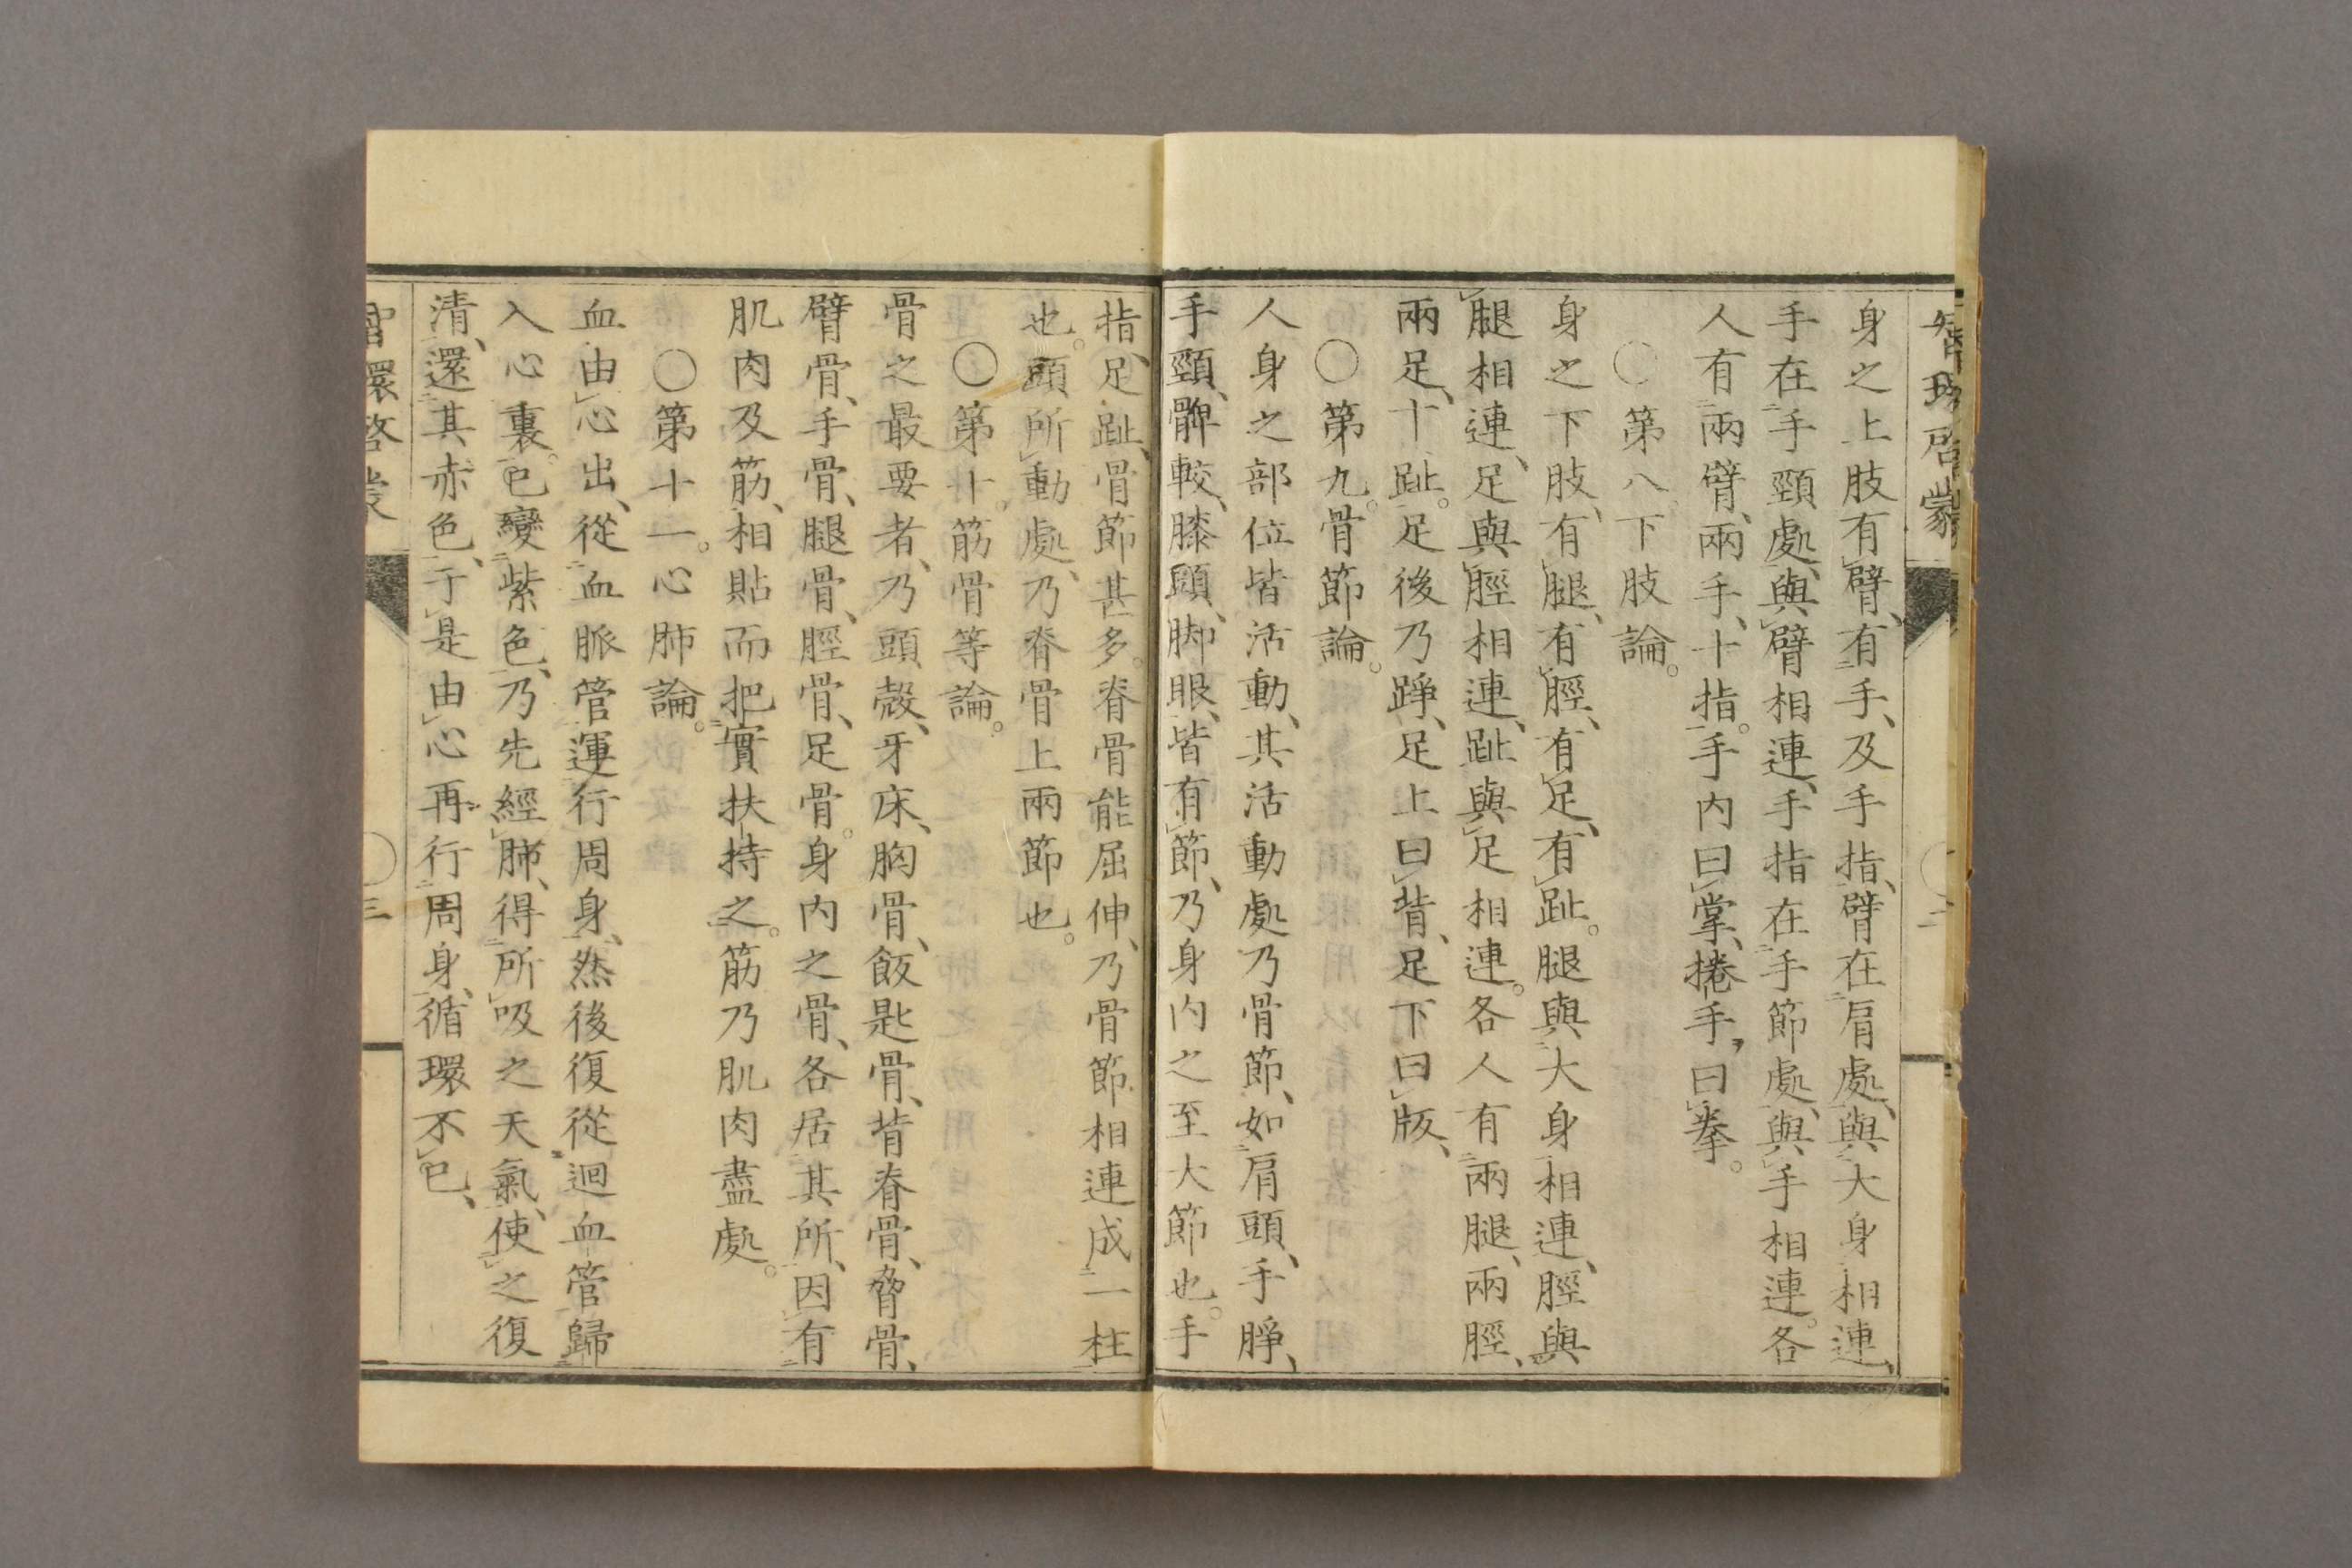 智環啓蒙
二
身之上肢有臂、有手、及手指、臂在肩處、與大身相連、
手在手頸處、與臂相連、手指在手節處、與手相連。各
人有兩臂、兩手、十指。手內曰掌、捲手、曰拳。
〇第八下肢論。
身之下肢、有腿、有脛、有足、有趾。腿與大身相連、脛與
腿相連、足與脛相連、趾與足相連。各人有兩腿、兩脛、
兩足、十趾。足後乃踭、足上曰背、足下曰版、
〇第九。骨節論。
人身之部位皆活動、其活動處乃骨節、如肩頭、手睜、
手頸、髀較、膝頭、脚眼、皆有節、乃身內之至大節也。手
指、足趾、骨節甚多。脊骨能屈伸、乃骨節相連成一柱
也。頭所動處、乃脊骨上兩節也。
〇第十。筋骨等論。
骨之最要者、乃頭殼、牙床、胸骨、飯匙骨、背脊骨、脅骨、
臂骨、手骨、腿骨、脛骨、足骨。身內之骨、各居其所、因有
肌肉及筋、相貼而把實扶持之。筋乃肌肉盡處。
〇第十一。心肺論。
血由心出、從血脈管運行周身、然後復從迴血管歸
入心裏。色變紫色、乃先經肺、得所吸之天氣、使之復
清、還其赤色、于是由心再行周身、循環不已、
智環啓蒙
〇三